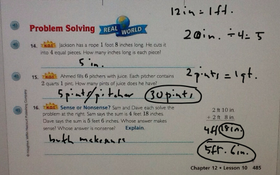 12in = 1ft.
Problem Solving REAL WORLD
20in. ÷4=5
14. Jackson has a rope 1 foot 8 inches long. He cuts it
into 4 equal pieces. How many inches long is each piece?
5 in.
2 pints = 1qt.
15. Ahmed fills 6 pitchers with juice. Each pitcher contains
2 quarts 1 pint. How many pints of juice does he have?
5 pints/pitcher 30 pints
16. Sense or Nonsense? Sam and Dave each solve the
problem at the right. Sam says the sum is 4 feet 18 inches.
Dave says the sum is 5 feet 6 inches. Whose answer makes
sense? Whose answer is nonsense? Explain.
2 ft 10 in
+ 2 ft 8 in
4ft 18in.
both make sense
5ft. 6in.
Chapter 12 • Lesson 10 485